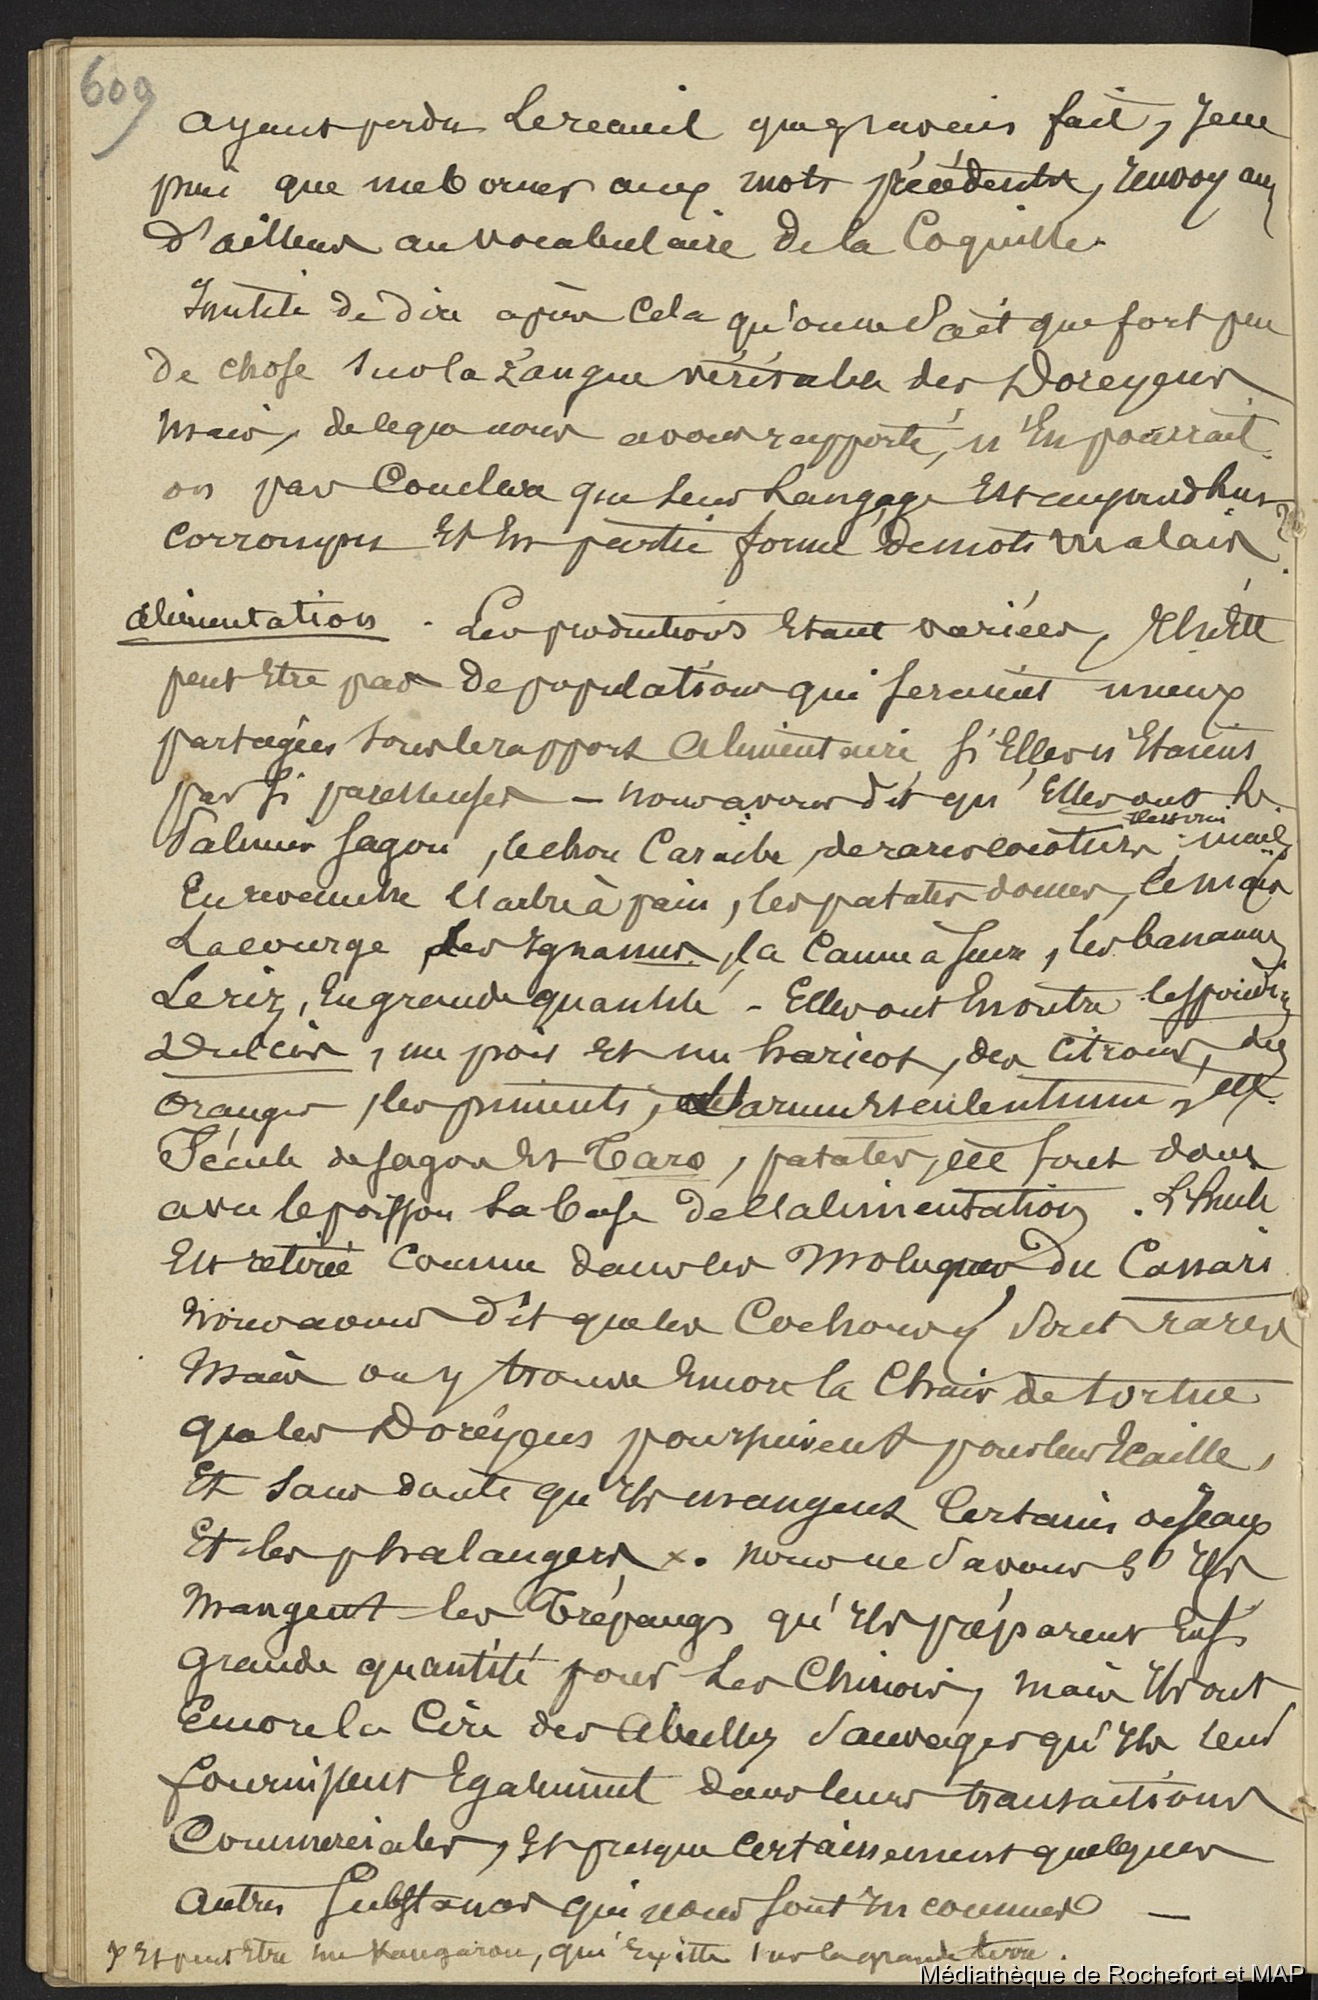 609
ayant perdu le recueil que j'avais fait, je ne
puis que me borner aux mots précédents, renvoyant
d'ailleurs au vocabulaire de la Coquille.
Inutile de dire après cela qu'on ne sait que fort peu
de chose sur la langue véritable des Doreyens
mais, de ce que nous avons rapporté, n'en pourrait
on pas conclure que leur langage est aujourd'hui
corrompu et en partie formé de mots malais ?
Alimentation. Les productions étant variées, il n'est
peut être pas de populations qui seraient mieux
partagées sous le rapport alimentaire si elles n'étaient
pas si paresseuses – nous avons dit qu'elles ont le
Palmier sagou, le chou Caraïbe, de rares cocotiers mais
en revanche l'arbre à pain, les patates douces, le maïs
la courge, les ignames, la canne à sucre, les bananes
le riz, en grande quantité – Elles ont en outre le spondias
dulcis, un pois et un haricot, des citrons, des
oranges, les piments, l'arum esculentum, etc.
Fécule de sagou et Taro, patates, etc sont donc
avec le poisson la base de l'alimentation. L'huile
est retirée comme dans les Moluques, du Canari
nous avons dit que les cochons y sont rares
mais on y trouve encore la chair de tortue
que les Doréyens poursuivent pour leur écaille,
et sans doute qu'ils mangent certains oiseaux
et les phalangers x. nous ne savons s'ils
mangent les Trépangs qu'ils préparent en si
grande quantité pour les Chinois, mais ils ont
encore la cire des abeilles sauvages qu'ils leur
fournissent également dans leurs transactions
commerciales, et presque certainement quelques
autres substances qui nous sont inconnues –
x Et peut être un Kangarou, qui existe sur la grande terre.
Médiathèque de Rochefort et MAP